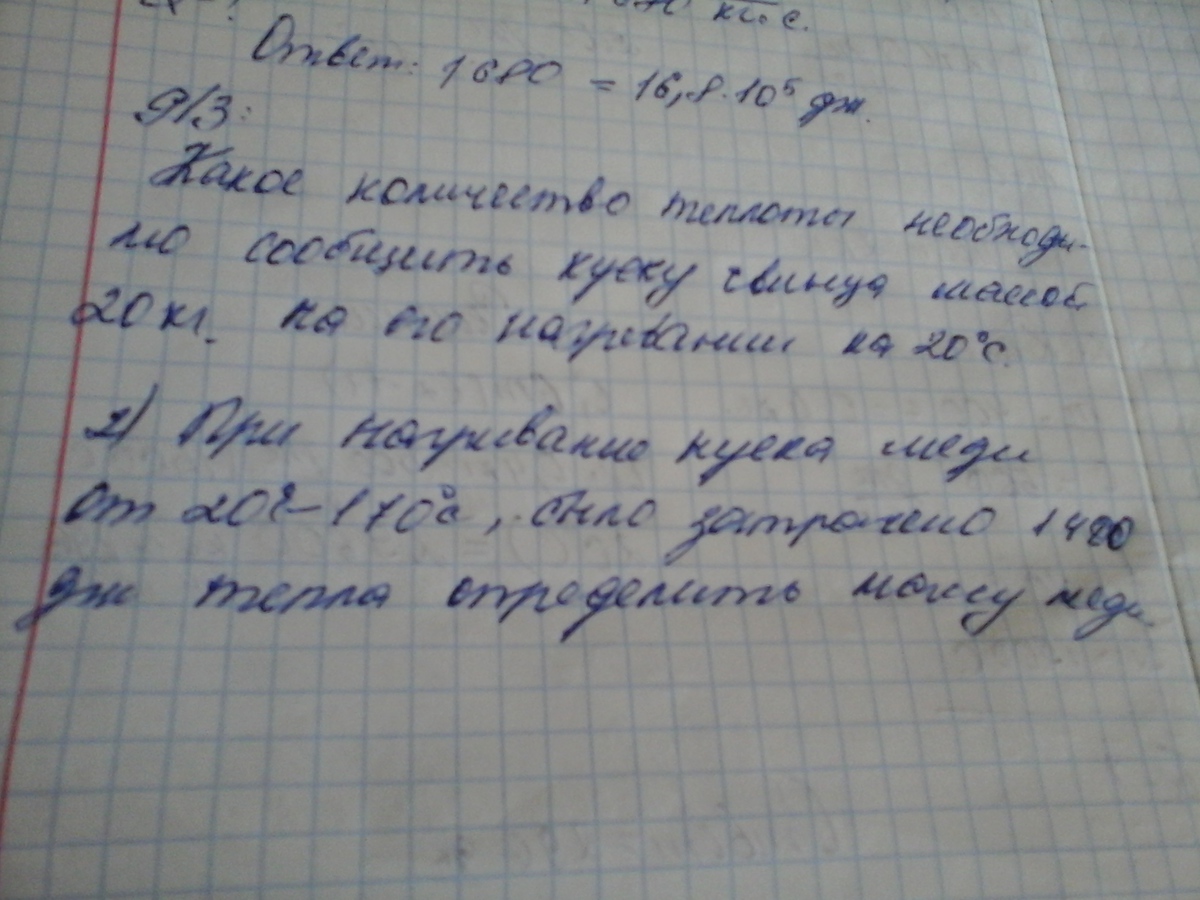 кг·с.
Ответ: 1680 = 16,8·10⁵ дж.
Д/З:
Какое количество теплоты необходи-
мо сообщить куску свинца массой
20 кг. на его нагревании на 20°С.
2) При нагривание куска меди
от 20°-170°с, было затрачено 1420
дж тепла определить массу меди